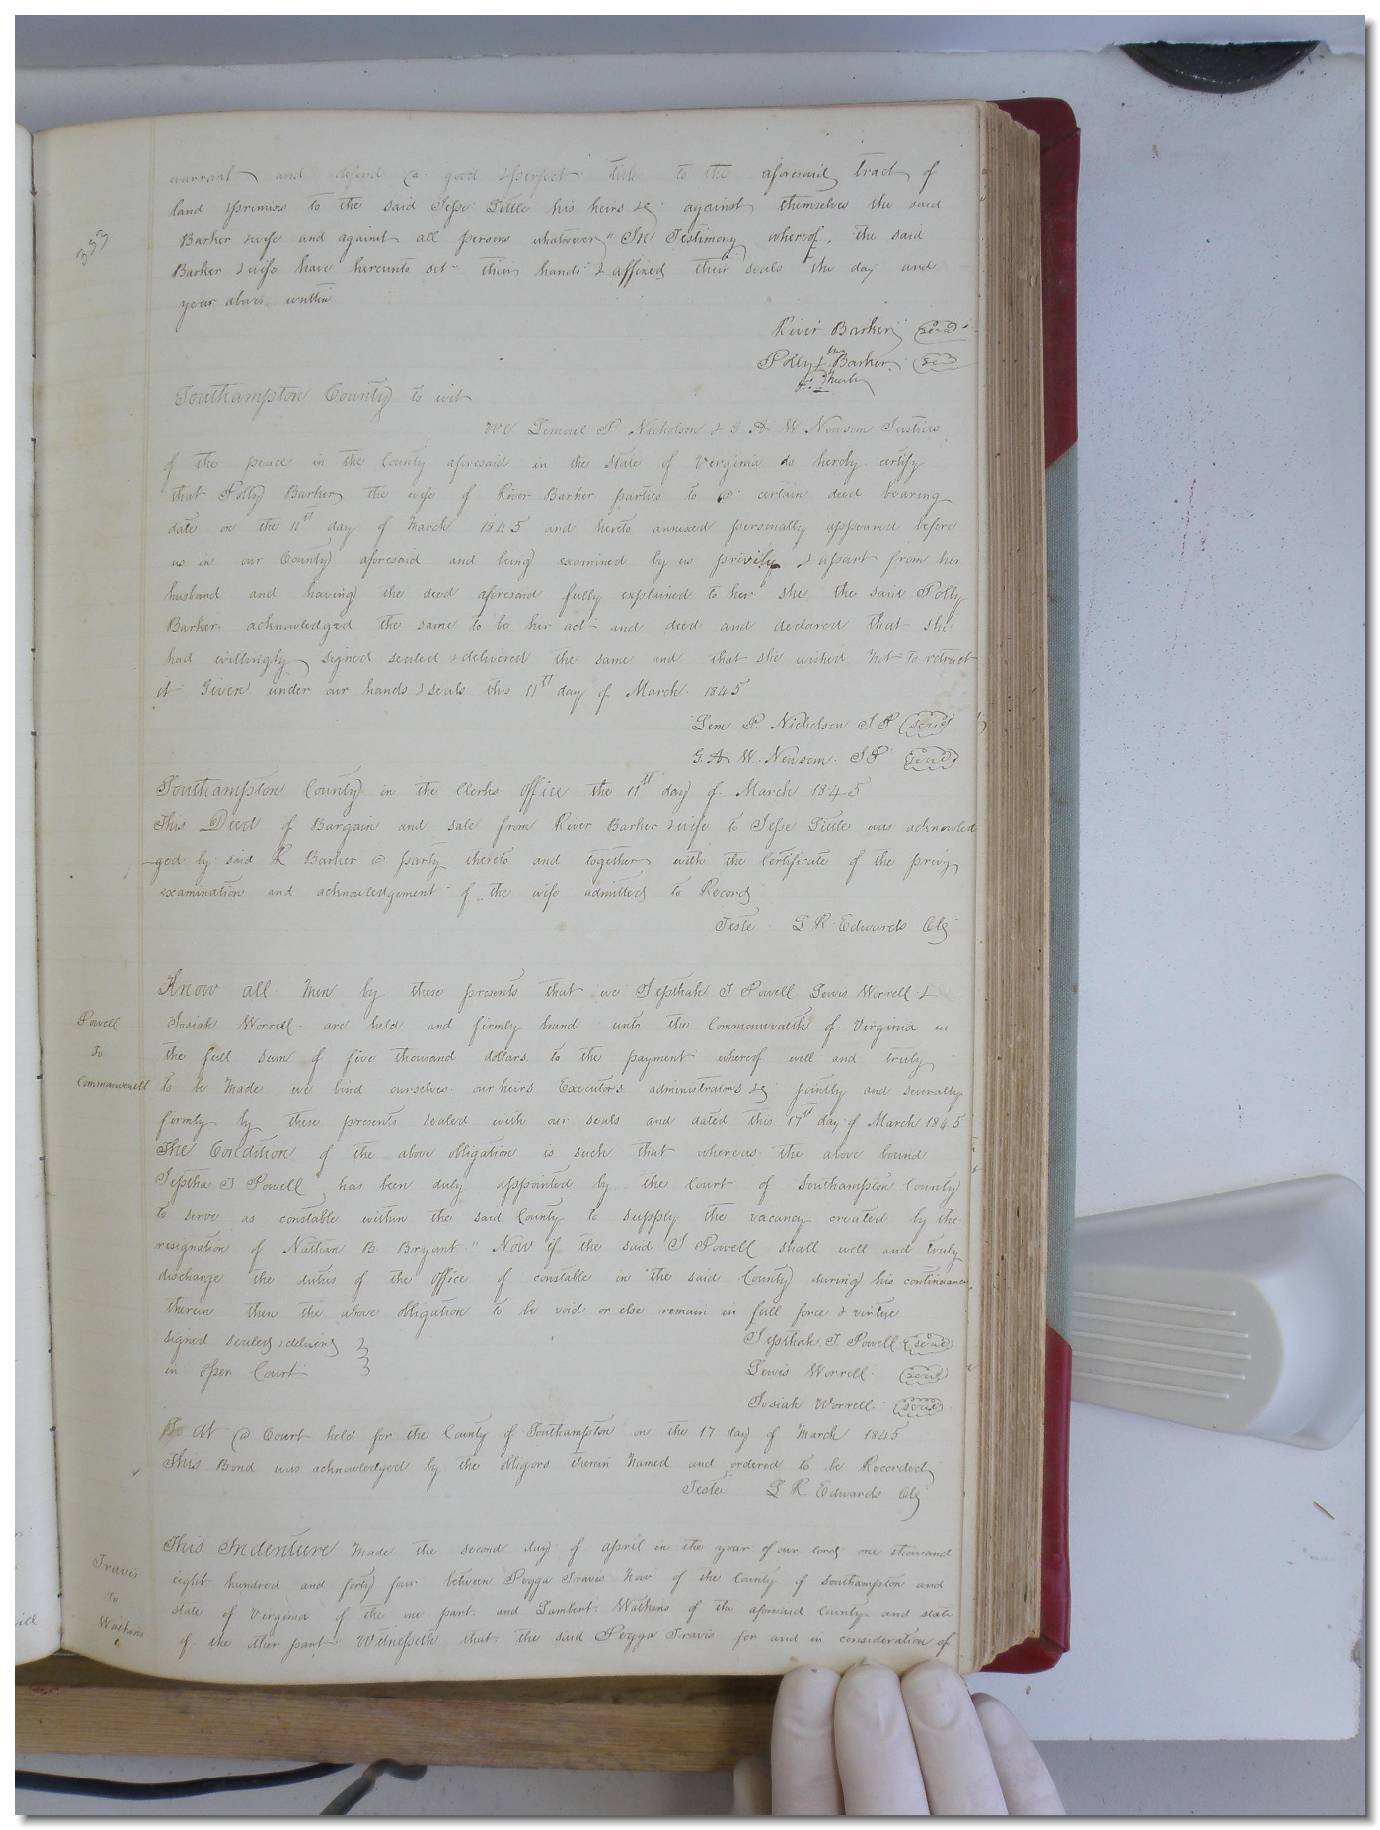 warrant and defend a good & perfect title to the aforesaid tract of
land & premises to the said Jesse Little his heirs &c against themselves the said
Barker & wife and against all persons whatsoever" In Testimony whereof, the said
Barker & wife have hereunto set their hands & affixed their seals the day and
year above written
River Barker seal
her
Polly + Barker seal
mark
Southampton County to wit
We Lemuel P Nicholson & G A W Newsom Justices
of the peace in the County aforesaid in the State of Virginia do hereby certify
that Polly Barker, the wife of River Barker parties to a certain deed bearing
date on the 11th day of March 1845 and hereto annexed personally appeared before
us in our County aforesaid and being examined by us privily & apart from her
husband and having the deed aforesaid fully explained to her she the said Polly
Barker acknowledged the same to be her act and deed and declared that she
had willingly signed sealed & delivered the same and that she wished not to retract
it Given under our hands & seals this 11th day of March 1845
Lem P. Nicholson JP seal
G. A. W. Newsom. JP seal
Southampton County in the Clerks Office the 11th day of March 1845
This Deed of Bargain and sale from River Barker & wife to Jesse Little was acknowled
ged by said R Barker a party thereto and together with the Certificate of the privy
examination and acknowledgement of the wife admitted to Record
Teste L R Edwards Clk
Know all Men by these presents that we Jepthah J Powell Lewis Worrell &
Powell
Josiah Worrell are held and firmly bound unto the Commonwealth of Virginia in
To
the full sum of five thousand dollars to the payment whereof well and truly
Commonwealth
to be Made we bind ourselves our heirs Executors administrators &c jointly and severally
firmly by these presents sealed with our seals and dated this 17th day of March 1845
The Condition of the above obligation is such that whereas the above bound
Jeptha J Powell has been duly appointed by the Court of Southampton County
to serve as constable within the said County to supply the vacancy created by the
resignation of Nathan B. Bryant" Now if the said J Powell shall well and truly
discharge the duties of the office of constable in the said County during his continuance
therein then the above obligation to be void or else remain in full force & virtue
signed sealed & delivered
in open Court
Jepthah. J. Powell seal
Lewis Worrell. seal
Josiah Worrell. seal
At a Court held for the County of Southampton on the 17 day of March 1845
This Bond was acknowledged by the obligors therein Named and ordered to be Recorded
Teste L R. Edwards Clk
This Indenture Made the second day of april in the year of our lord one thousand
Travis
eight hundred and forty four between Pegga Travis Now of the County of Southampton and
to
state of Virginia of the one part and Lambert Watkins of the aforesaid County and state
Watkins
of the other part Witnesseth that the said Pegga Travis for and in consideration of